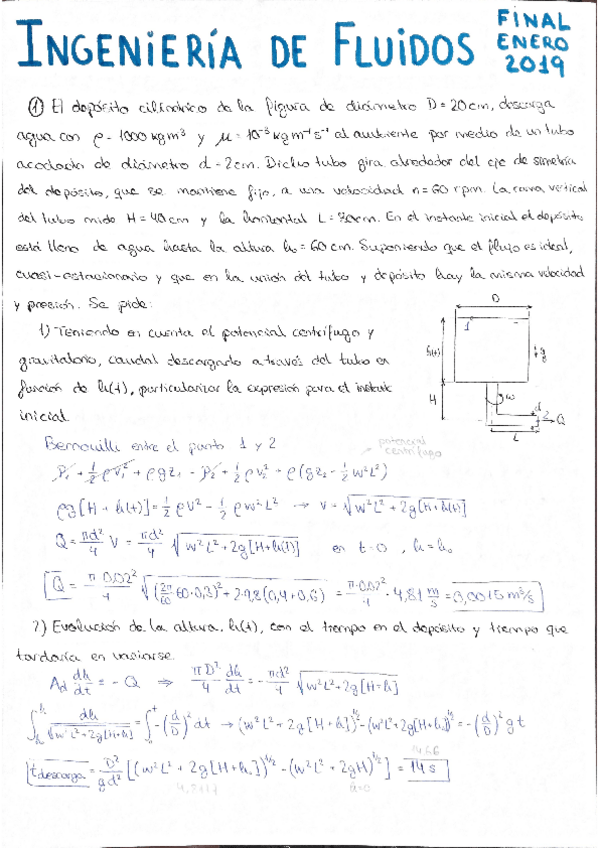 INGENIERÍA DE FLUIDOS FINAL ENERO 2019
① El depósito cilíndrico de la figura de diámetro D = 20cm, descarga
agua con ρ = 1000 kg m³ y μ = 10⁻³ kg m⁻¹ s⁻¹ al ambiente por medio de un tubo
acodado de diámetro d = 2cm. Dicho tubo gira alrededor del eje de simetría
del depósito, que se mantiene fijo, a una velocidad n = 60 rpm. La rama vertical
del tubo mide H = 40cm y la horizontal L = 30cm. En el instante inicial el depósito
está lleno de agua hasta la altura h₀ = 60 cm. Suponiendo que el flujo es ideal,
cuasi-estacionario y que en la unión del tubo y depósito hay la misma velocidad
y presión. Se pide:
1) Teniendo en cuenta el potencial centrífugo y
gravitatorio, caudal descargado a través del tubo en
función de h(t), particularizar la expresión para el instante
inicial.
D
1
h(t)
g
H
ω
d
2
Q
L
Bernouilli entre el punto 1 y 2
potencial centrífugo
P₁ + ½ρV₁² + ρgz₁ = P₂ + ½ρV₂² + ρ(gz₂ - ½ω²L²)
ρg[H + h(t)] = ½ρV² - ½ρω²L² → V = √(ω²L² + 2g[H+h(t)])
Q = πd²/4 V = πd²/4 √(ω²L² + 2g[H+h(t)]) en t=0, h = h₀
Q = π·0,02²/4 √((2π/60·60·0,3)² + 2·9,8(0,4+0,6)) = π·0,02²/4 · 4,81 m/s = 0,0015 m³/s
2) Evolución de la altura, h(t), con el tiempo en el depósito y tiempo que
tardaría en vaciarse.
A_d dh/dt = -Q ⇒ πD²/4 dh/dt = -πd²/4 √(ω²L² + 2g[H+h])
∫ dh/√(ω²L² + 2g[H+h]) = ∫ -(d/D)² dt → (ω²L² + 2g[H+h])^½ - (ω²L² + 2g[H+h₀])^½ = -(d/D)² g t
t descarga = D²/gd² [(ω²L² + 2g[H+h₀])^½ - (ω²L² + 2gH)^½] = 14 s
h=0